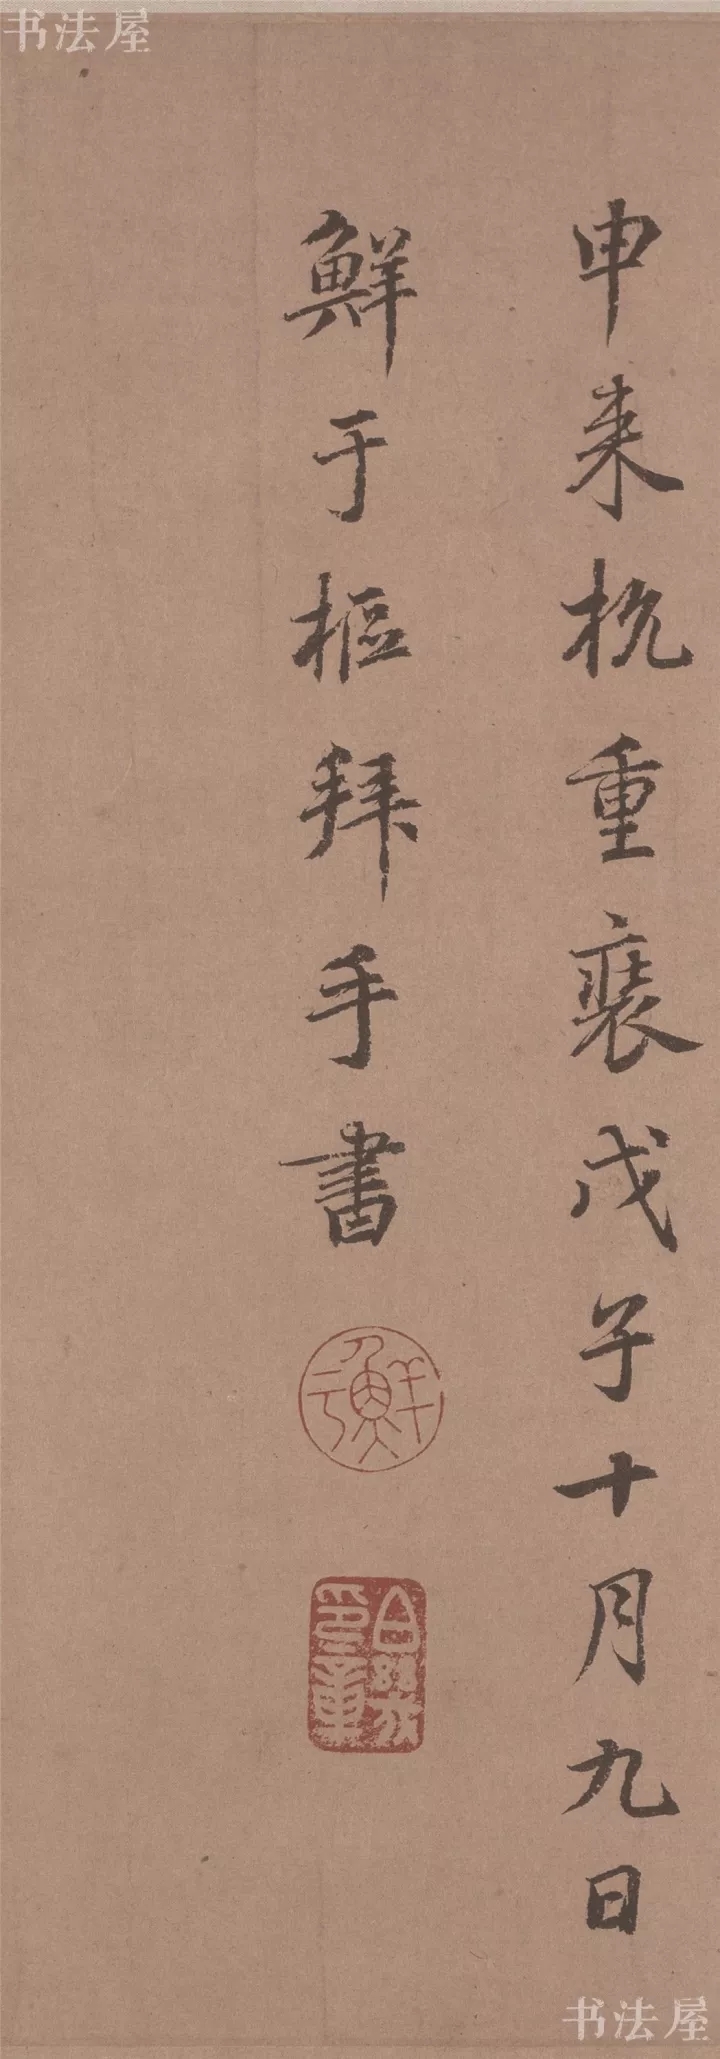 书法屋
申来杭重装戊子十月九日
鲜于樞拜手書
鮮于
书法屋